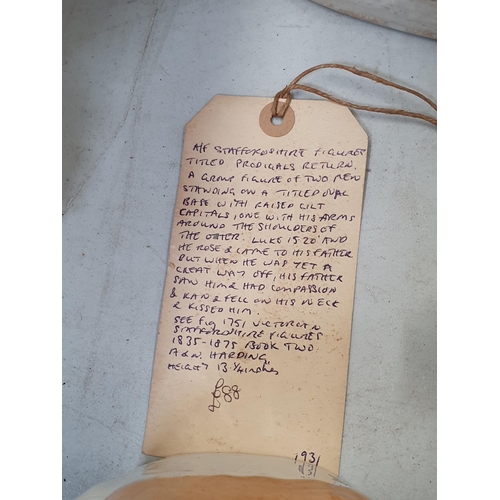 A/F STAFFORDSHIRE FIGURES
TITLED PRODIGALS RETURN.
A GROUP FIGURE OF TWO MEN
STANDING ON A TITLED OVAL
BASE WITH RAISED GILT
CAPITALS, ONE WITH HIS ARMS
AROUND THE SHOULDERS OF
THE OTHER. LUKE 15 20 AND
HE ROSE & CAME TO HIS FATHER
BUT WHEN HE WAS YET A
GREAT WAY OFF, HIS FATHER
SAW HIM & HAD COMPASSION
& RAN & FELL ON HIS NECK
& KISSED HIM.
SEE Fig 1751 VICTORIAN
STAFFORDSHIRE FIGURES
1835-1875 BOOK TWO
A & N. HARDING.
HEIGHT 13 1/4 inches
1931